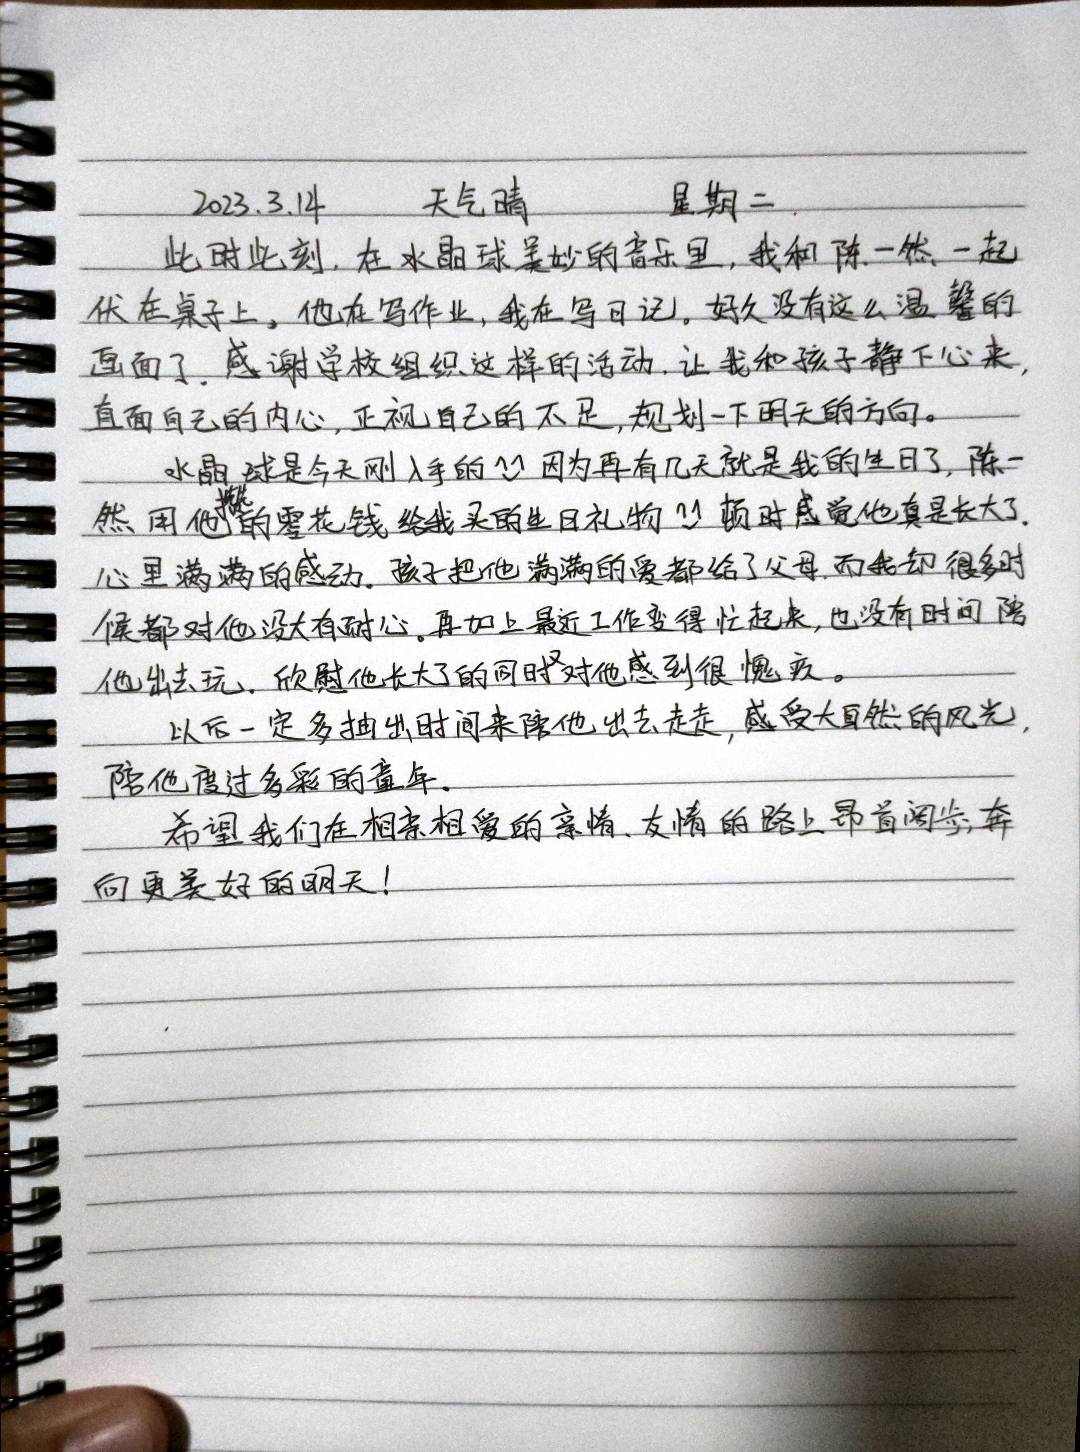 2023.3.14 天气晴 星期二
此时此刻,在水晶球美妙的音乐里,我和陈一然一起
伏在桌子上。他在写作业,我在写日记。好久没有这么温馨的
画面了.感谢学校组织这样的活动.让我和孩子静下心来,
直面自己的内心,正视自己的不足,规划一下明天的方向。
水晶球是今天刚入手的 因为再有几天就是我的生日了,陈一
然用他攒的零花钱给我买的生日礼物 顿时感觉他真是长大了.
心里满满的感动.孩子把他满满的爱都给了父母.而我却很多时
候都对他没大有耐心。再加上最近工作变得忙起来,也没有时间陪
他出去玩.欣慰他长大了的同时又对他感到很愧疚。
以后一定多抽出时间来陪他出去走走,感受大自然的风光,
陪他度过多彩的童年.
希望我们在相亲相爱的亲情、友情的路上昂首阔步,奔
向更美好的明天!